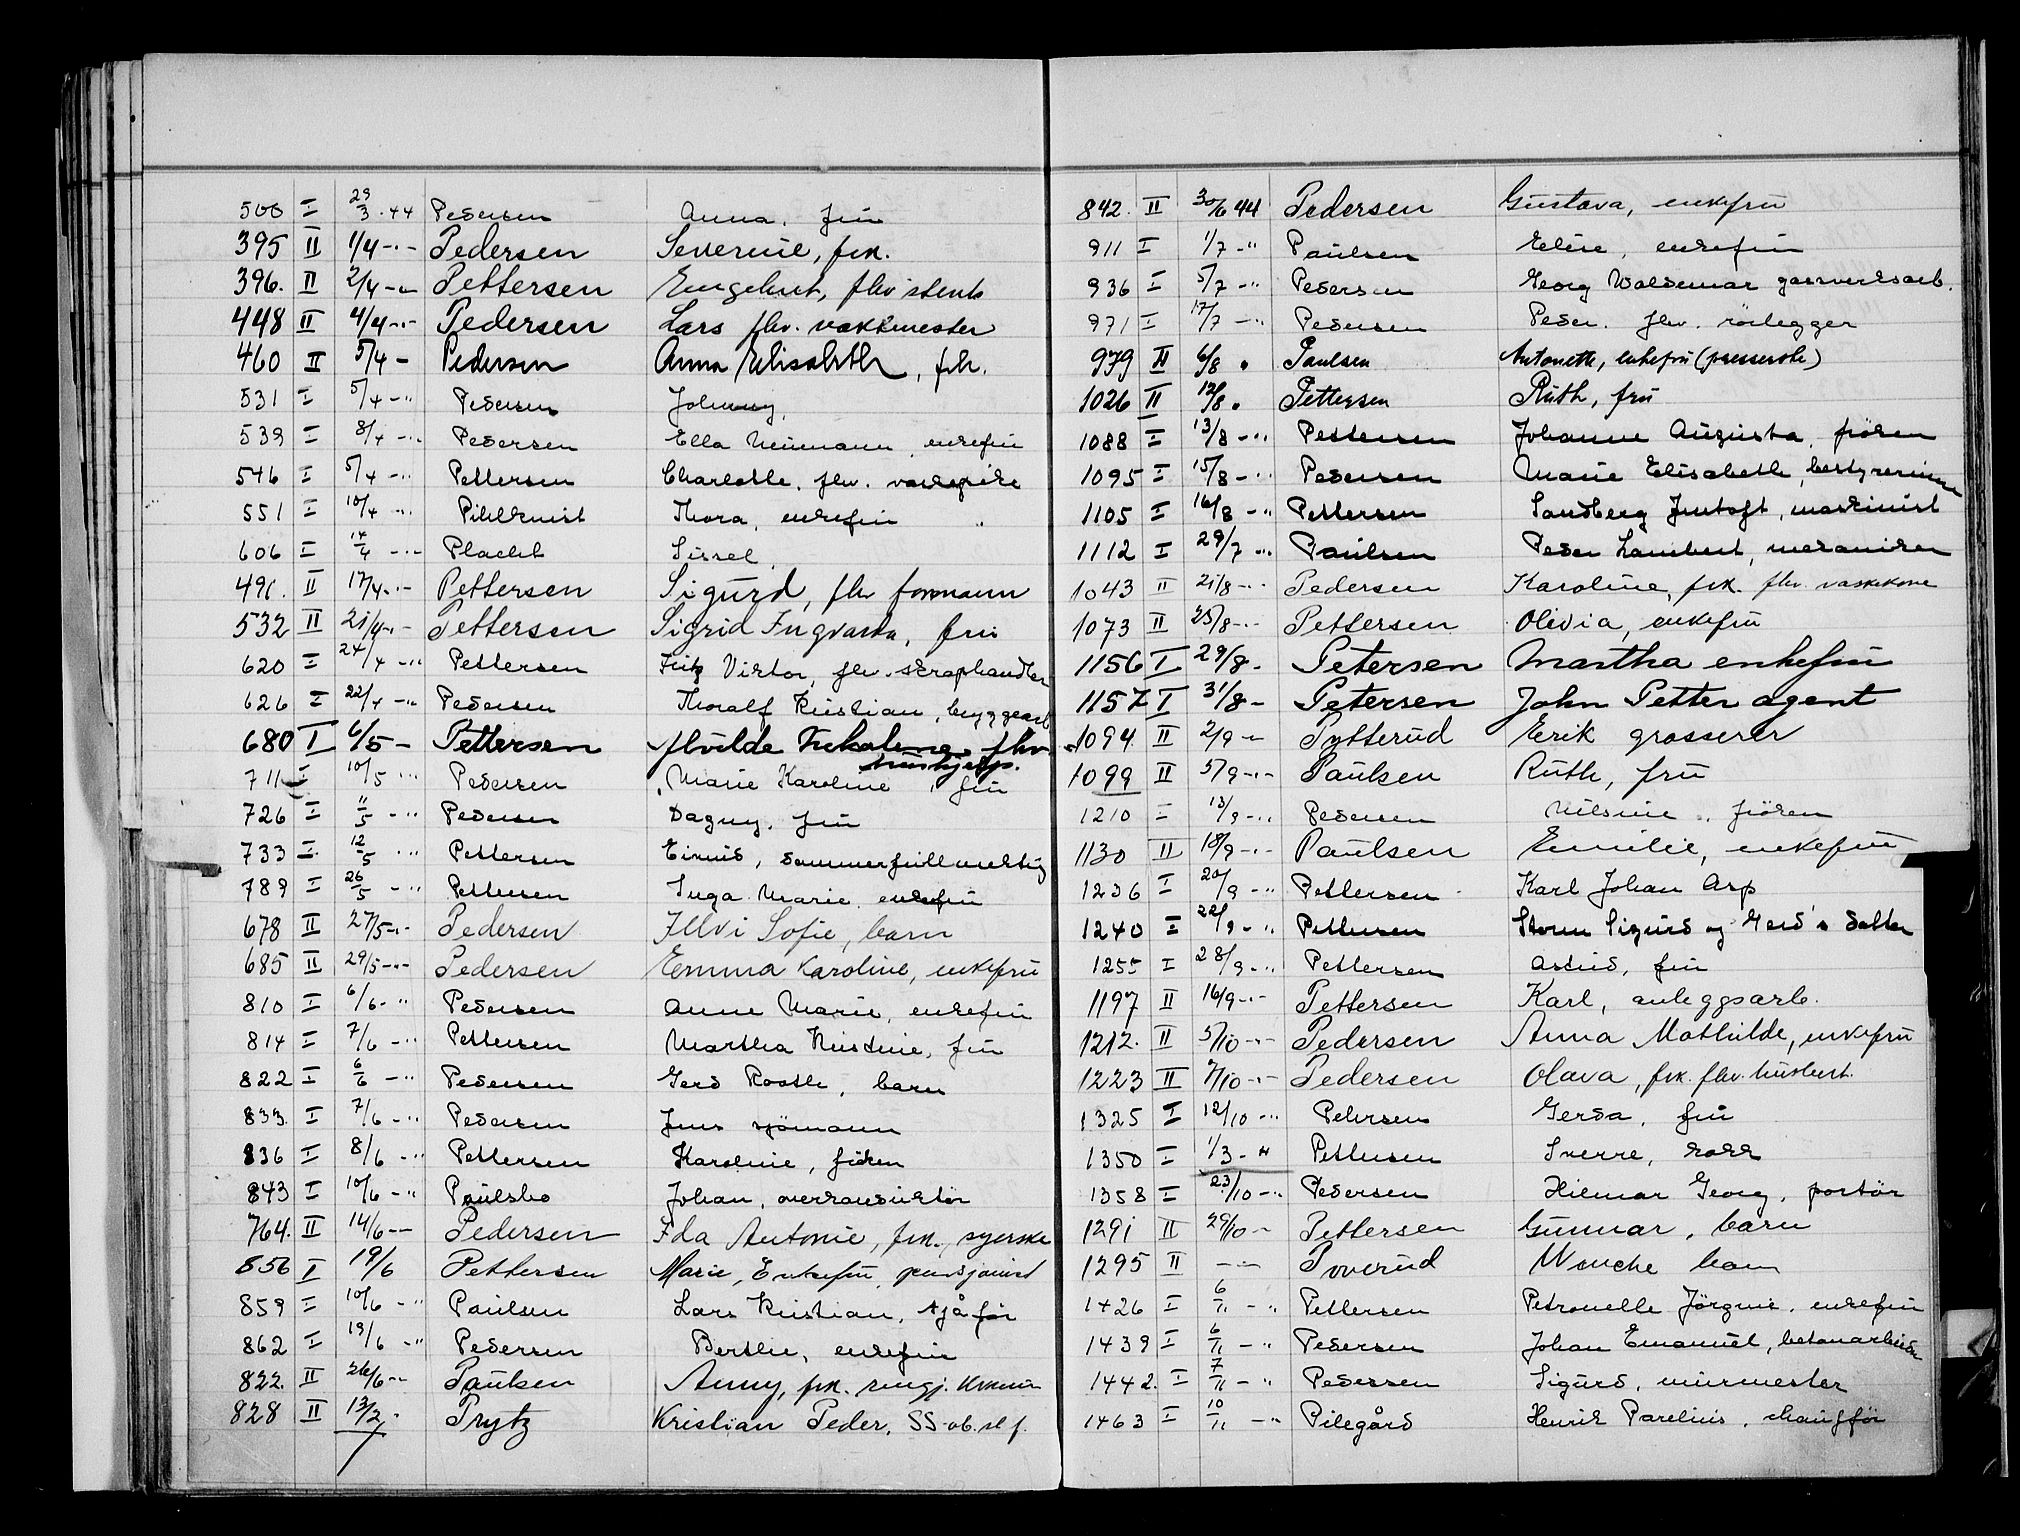 500 I 29/3 · 44 Pedersen Anna, fru
395 II 1/4 -"- Pedersen Severine, frk.
396. II 2/4 -"- Pettersen Engebret, flev
448 II 4/4 -"- Pedersen Lars flev. vaktmester
460 II 5/4 - Pedersen Anna Elisabeth, frk.
531 I 5/4 -" Pedersen Johnny,
539 I 8/4 -"- Pedersen Ella Neumann, enkefru
546 I 5/4 -" Pettersen Charlotte, flev. vaskepike
551 I 10/4 -" Pihlkvist Thora, enkefru "
606 I 14/4 -"- Placht Sissel,
491. II 17/4 -"- Pettersen Sigurd, flev formann
532 II 21/4 -"- Pettersen Sigrid Ingvarda, fru
620 I 24/4 -"- Pettersen Fritz Viktor, flev. skraphandler
626 I 22/4 -"- Pedersen Thoralf Kristian, bryggearb
680 I 6/5 - Pettersen Alvilde Nikoline flev
hushjelp.
711 I 10/5 " Pedersen Marie Karoline, fru
726 I 11/5 -" Pedersen Dagny, fru
733 I 12/5 " Pettersen Eivind, dommerfullmektig
789 I 26/5 -" Pettersen Inga Marie, enkefru
678 II 27/5 -"- Pedersen Sofie, barn
685 II 29/5 -"- Pedersen Emma Karoline, enkefru
810 I 6/6 -" Pedersen Anne Marie, enkefru
814 I 7/6 -" Pettersen Martha Kristine, fru
822 I 6/6 -" Pedersen Gerd , barn
833. I 7/6 -" Pedersen Jens sjömann
836 I 8/6 -" Pettersen Karoline, fröken
843 I 10/6 -" Paulsbo Johan, overkonduktör
764. II 14/6 -"- Pedersen Ida Antonie, frk. syerske
856 I 19/6 Pettersen Marie, Enkefru, pensjonist
859 I 10/6 -" Paulsen Lars Kristian, sjåför
862 I 19/6 -" Pedersen Berthe, enkefru
822. II 26/6 -"- Paulsen Anny, frk. rengj. kvinne
828 II 13/2 - Prytz Kristian Peder, SS-
842. II 30/6 44 Pedersen Gustava, enkefru
911 I 1/7 -" Paulsen Eline, enkefru
936 I 5/7 -" Pedersen Georg Waldemar gassverksarb.
971 I 17/7 -" Pedersen Peder. flev. rörlegger
979 II 6/8 " Paulsen Antonette, enkefru
1026 II 12/8 " Pettersen Ruth, fru
1088 I 13/8 -"- Pettersen Johanne Augusta, fröken
1095 I 15/8 -" Pedersen Marie Elisabeth, bestyrerinne
1105 I 16/8 -" Pettersen Sandberg , maskinist
1112 I 29/7 -" Paulsen Peder Lambert, mekaniker
1043 II 21/8 -"- Pedersen Karoline, frk. flev. vaskekone
1073 II 25/8 -"- Pettersen Olivia, enkefru
1156 I 29/8 - Petersen Martha enkefru
1157 I 31/8 - Petersen John Petter agent
1094. II 2/9 - Pytterud Erik grosserer
1099 II 5/9 -"- Paulsen Ruth, fru
1210 I 13/9 -" Pedersen Nilsine, fröken
1130 II 18/9 -"- Paulsen Emilie, enkefru
1236 I 20/9 -" Pettersen Karl Johan Arp
1240 I 22/9 -" Pettersen Sigurd og Gerd's datter
1255 I 28/9 -" Pettersen Astrid, fru
1197 II 16/9 -"- Pettersen Karl, anleggsarb.
1212. II 5/10 -"- Pedersen Anna Mathilde, enkefru
1223 II 7/10 -"- Pedersen Olava, frk. flev. husbest.
1325 I 12/10 -" Petersen Gerda, fru
1350 I 1/3 - " Pettersen Sverre, kokk
1358 I 23/10 -" Pedersen Hilmar Georg, portör
1291 II 29/10 -"- Pettersen Gunnar, barn
1295 II -"- Poverud Wenche barn
1426 I 6/11 -" Pettersen Petronelle Jörgine, enkefru
1439 I 6/11 -" Pedersen Johan Emanuel, betonarbeider
1442. I 7/11 -" Pedersen Sigurd, murmester
1463 I 10/11 -" Pilegård Henrik Parelius, chaufför